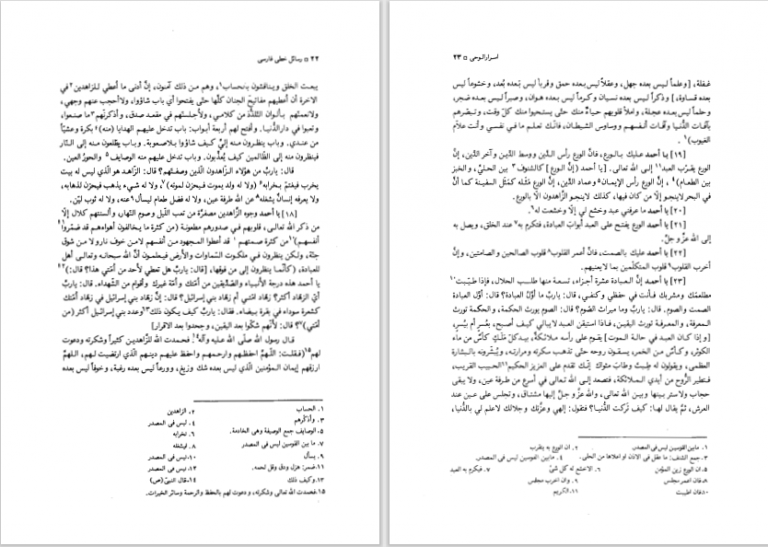 ۲۲ □ رسائل خطی فارسی
يبعث الخلق ويناقشون بالحساب۱، وهم من ذلك آمنون، إنَّ أدنى ما أعطي للزاهدين۲ في
الآخرة أن أعطيهم مفاتيح الجنان كلّها حتى يفتحوا أي باب شاؤوا، ولا أحجب عنهم وجهي،
ولأنعمنّهم بألوان التلذّذ من كلامي، ولأجلسنّهم في مقعد صدق، وأذكرنّهم۳ ما صنعوا،
وتعبوا في دار الدّنيا. وأفتح لهم أربعة أبواب: باب تدخل عليهم الهدايا (منه)۴ بكرة وعشيّاً
من عندي. وباب ينظرون منه إليّ كيف شاؤوا بلا صعوبة. وباب يطلعون منه إلى النّار
فينظرون منه إلى الظّالمين كيف يُعذَّبون. وباب تدخل عليهم منه الوصايف۵ والحور العين.
قال: ياربّ من هؤلاء الزّاهدون الذين وصفتهم؟ قال: الزّاهد هو الّذي ليس له بيت
يخرب فيغتمّ بخرابه۶ (ولا له ولد يموت فيحزن لموته)۷، ولا له شيء يذهب فيحزن لذهابه،
ولا يعرفه إنسان يشغله۸ عن الله طرفة عين، ولا له فضل طعام ليسأل۹ عنه، ولا له ثوب ليّن.
[۱۸] يا أحمد وجوه الزّاهدين مصفرّة من تعب اللّيل وصوم النّهار، وألسنتهم كلال إلّا
من ذكر الله تعالى، قلوبهم في صدورهم مطعونة (من كثرة ما يخالفون أهواءهم قد ضمّروا
أنفسهم)۱۰ من كثرة صمتهم. قد أعطوا المجهود من أنفسهم لا من خوف نار ولا من شوق
جنّة، ولكن ينظرون في ملكوت السّماوات والأرض فيعلمون أنّ الله سبحانه وتعالى أهل
للعبادة، (كأنّما ينظرون إلى من فوقها، [قال: ياربّ هل تعطي لأحد من أمّتي هذا؟ قال:)
يا أحمد هذه درجة الأنبياء والصّدّيقين من أمّتك وأمّة غيرك وأقوام من الشّهداء. قال: ياربّ
أيّ الزّهاد أكثر؟ زهاد أمّتي أم زهاد بني إسرائيل؟ قال: إنّ زهاد بني إسرائيل في زهاد أمّتك
كشعرة سوداء في بقرة بيضاء. فقال: ياربّ كيف يكون ذلك وعدد بني إسرائيل أكثر (من
أمّتي)؟ قال: لأنّهم شكّوا بعد اليقين، وجحدوا بعد الإقرار.
قال رسول الله صلّى الله عليه وآله: فحمدت الله للزّاهدين كثيراً وشكرته ودعوت
لهم۱۵ (فقلت: اللّهمّ احفظهم وارحمهم واحفظ عليهم دينهم الّذي ارتضيت لهم، اللّهمّ
ارزقهم إيمان المؤمنين الّذي ليس بعده شك وزيغ، وورعاً ليس بعده رغبة، وخوفاً ليس بعده
۱. الحساب ۲. الزاهدين
۳. وأذكرهم ۴. ليس في المصدر
۵. الوصايف جمع الوصيفة وهي الخادمة. ۶. لخرابه
۷. ما بين القوسين ليس في المصدر ۸. ليشغله
۹. يسأل ۱۰. ليس في المصدر
۱۱. ضمر: هزل ودق وقل لحمه. ۱۲. ليس في المصدر
۱۳. وكيف ذلك ۱۴. قال النبيّ (ص)
۱۵. فحمدت الله تعالى وشكرته، ودعوت لهم بالحفظ والرحمة وسائر الخيرات.
اسرارالوحی □ ۲۳
غفلة، [وعلماً ليس بعده جهل، وعقلاً ليس بعده حمق وقرباً ليس بعده بُعد، وخشوعاً ليس
بعده قساوة، ] وذكراً ليس بعده نسيان وكرماً ليس بعده هوان، وصبراً ليس بعده ضجر،
وحلماً ليس بعده عجلة، واملأ قلوبهم حياءً منك حتى يستحيوا منك كلّ وقت، وتبصّرهم
بآفات الدّنيا وآفات أنفسهم ووساوس الشيطان، فإنّك تعلم ما في نفسي وأنت علّام
الغيوب)۱.
[۱۹] يا أحمد عليك بالورع، فانّ الورع رأس الدّين ووسط الدّين وآخر الدّين، إنّ
الورع يقرّب العبد۲ إلى الله تعالى. [يا أحمد (إنّ الورع] كالشنوف۳ بين الحليّ، والخبز
بين الطعام)۴، إنّ الورع رأس الإيمان۵ وعماد الدّين، إنّ الورع مَثَله كمثل السفينة كما أنّ
في البحر لاينجو إلّا من كان فيها، كذلك لاينجو الزّاهدون الّا بالورع.
[۲۰] يا أحمد ما عرفني عبد وخشع لي إلّا وخشعت له۶.
[۲۱] يا أحمد الورع يفتح على العبد أبواب العبادة، فتكرم به۷ عند الخلق، ويصل به
إلى الله عزّ وجلّ.
[۲۲] يا أحمد عليك بالصمت، فانّ أعمر القلوب۸ قلوب الصالحين والصامتين، وإنّ
أخرب القلوب۹ قلوب المتكلّمين بما لايعنيهم.
[۲۳] يا أحمد إنّ العبادة عشرة أجزاء، تسعة منها طلب الحلال، فإذا طيّبت۱۰
مطعمك ومشربك فأنت في حفظي وكنفي، قال: ياربّ ما أوّل العبادة؟ قال: أوّل العبادة
الصمت والصوم. قال: ياربّ وما ميراث الصّوم؟ قال: الصوم يورث الحكمة، والحكمة تورث
المعرفة، والمعرفة تورث اليقين، فاذا استيقن العبد لا يبالي كيف أصبح، بعُسر أم بيُسر،
[وإذا كان العبد في حالة الموت] يقوم على رأسه ملائكة، بيد كلّ مَلَك كأس من ماء
الكوثر، وكأس من الخمر، يسقون روحه حتى تذهب سكرته ومرارته، ويُبشّرونه بالبشارة
العظمى، ويقولون له طِبتَ وطاب مثواك إنّك تقدم على العزيز الحكيم۱۱ الحبيب القريب،
فتطير الرّوح من أيدي الملائكة، فتصعد إلى الله تعالى في أسرع من طرفة عين، ولا يبقى
حجاب ولا ستر بينها وبين الله تعالى، والله عزّ وجلّ إليها مشتاق، وتجلس على عين عند
العرش، ثمّ يقال لها: كيف تركت الدّنيا؟ فتقول: إلهي وعزّتك وجلالك لا علم لي بالدّنيا،
۱. ما بين القوسين ليس في المصدر. ۲. ان الورع به يتقرب
۳. جمع الشنف: ما علق في الاذن أو اعلاها من الحلي. ۴. ما بين القوسين ليس في المصدر.
۵. ان الورع زين المؤمن ۶. الاخشع له كل شئ ۷. فيكرم به العبد
۸. فان اعمر مجلس ۹. وان اخرب مجلس
۱۰. فان اطيبت ۱۱. الكريم